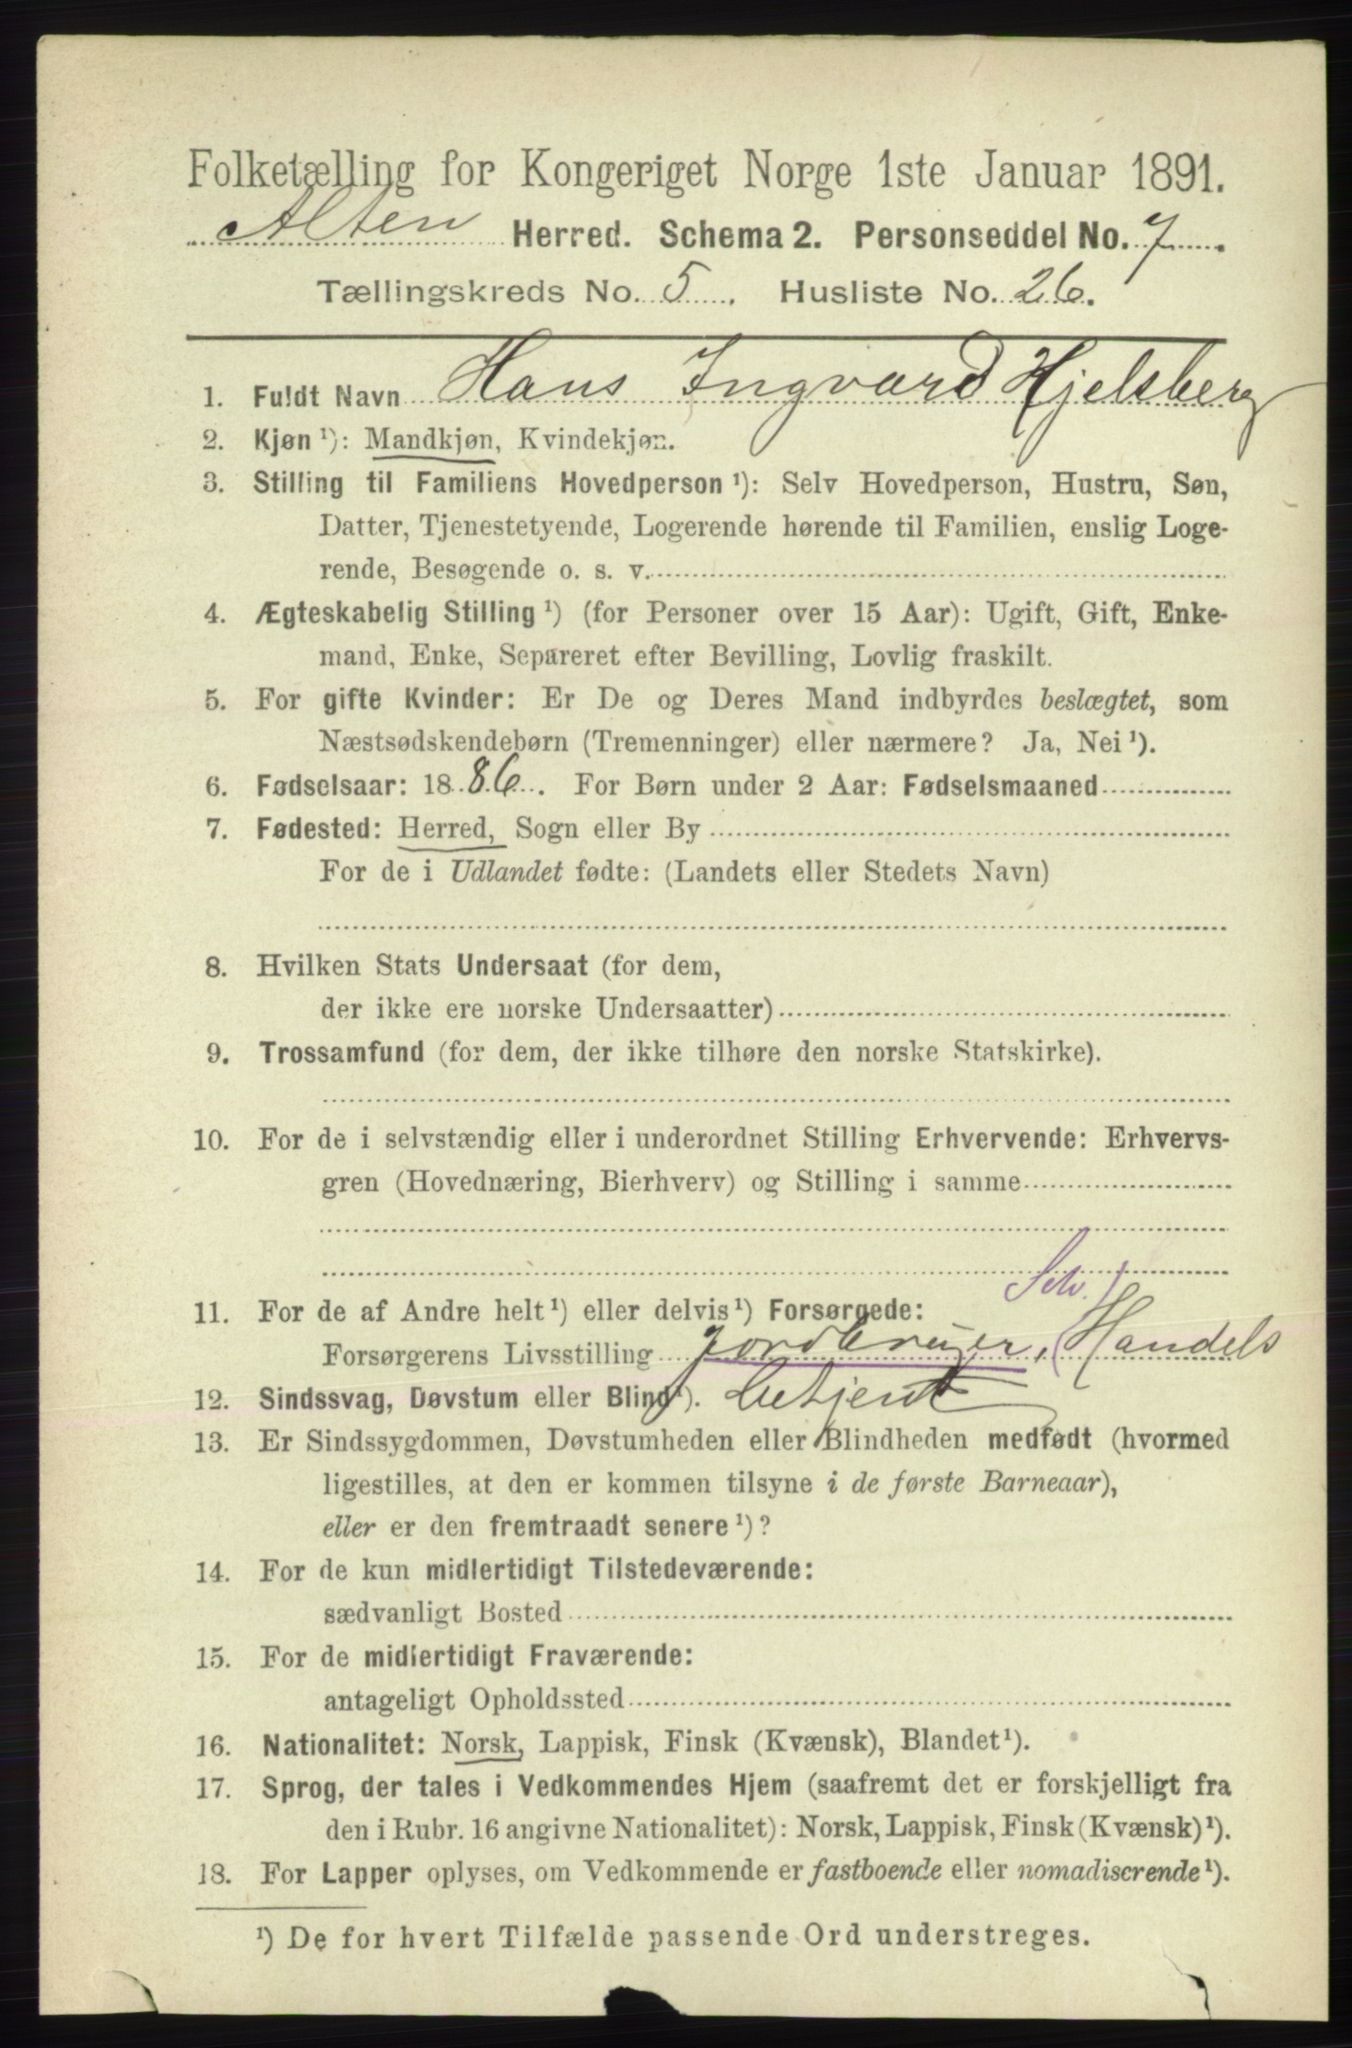 Folketælling for Kongeriget Norge 1ste Januar 1891.
Alten Herred. Schema 2. Personseddel No. 7.
Tællingskreds No. 5. Husliste No. 26.
1. Fuldt Navn Hans Ingvard Hjelsberg
2. Kjøn ¹): Mandkjøn, Kvindekjøn.
3. Stilling til Familiens Hovedperson ¹): Selv Hovedperson, Hustru, Søn,
Datter, Tjenestetyende, Logerende hørende til Familien, enslig Loge-
rende, Besøgende o. s. v.
4. Ægteskabelig Stilling ¹) (for Personer over 15 Aar): Ugift, Gift, Enke-
mand, Enke, Separeret efter Bevilling, Lovlig fraskilt.
5. For gifte Kvinder: Er De og Deres Mand indbyrdes beslægtet, som
Næstsødskendebørn (Tremenninger) eller nærmere? Ja, Nei ¹).
6. Fødselsaar: 1886. For Børn under 2 Aar: Fødselsmaaned
7. Fødested: Herred, Sogn eller By
For de i Udlandet fødte: (Landets eller Stedets Navn)
8. Hvilken Stats Undersaat (for dem,
der ikke ere norske Undersaatter)
9. Trossamfund (for dem, der ikke tilhøre den norske Statskirke).
10. For de i selvstændig eller i underordnet Stilling Erhvervende: Erhvervs-
gren (Hovednæring, Bierhverv) og Stilling i samme
Selv.)
11. For de af Andre helt ¹) eller delvis ¹) Forsørgede:
Forsørgerens Livsstilling Jordbruger, (Handels
12. Sindssvag, Døvstum eller Blind ¹). betjent
13. Er Sindssygdommen, Døvstumheden eller Blindheden medfødt (hvormed
ligestilles, at den er kommen tilsyne i de første Barneaar),
eller er den fremtraadt senere ¹)?
14. For de kun midlertidigt Tilstedeværende:
sædvanligt Bosted
15. For de midlertidigt Fraværende:
antageligt Opholdssted
16. Nationalitet: Norsk, Lappisk, Finsk (Kvænsk), Blandet ¹).
17. Sprog, der tales i Vedkommendes Hjem (saafremt det er forskjelligt fra
den i Rubr. 16 angivne Nationalitet): Norsk, Lappisk, Finsk (Kvænsk) ¹).
18. For Lapper oplyses, om Vedkommende er fastboende eller nomadiserende ¹).
¹) De for hvert Tilfælde passende Ord understreges.